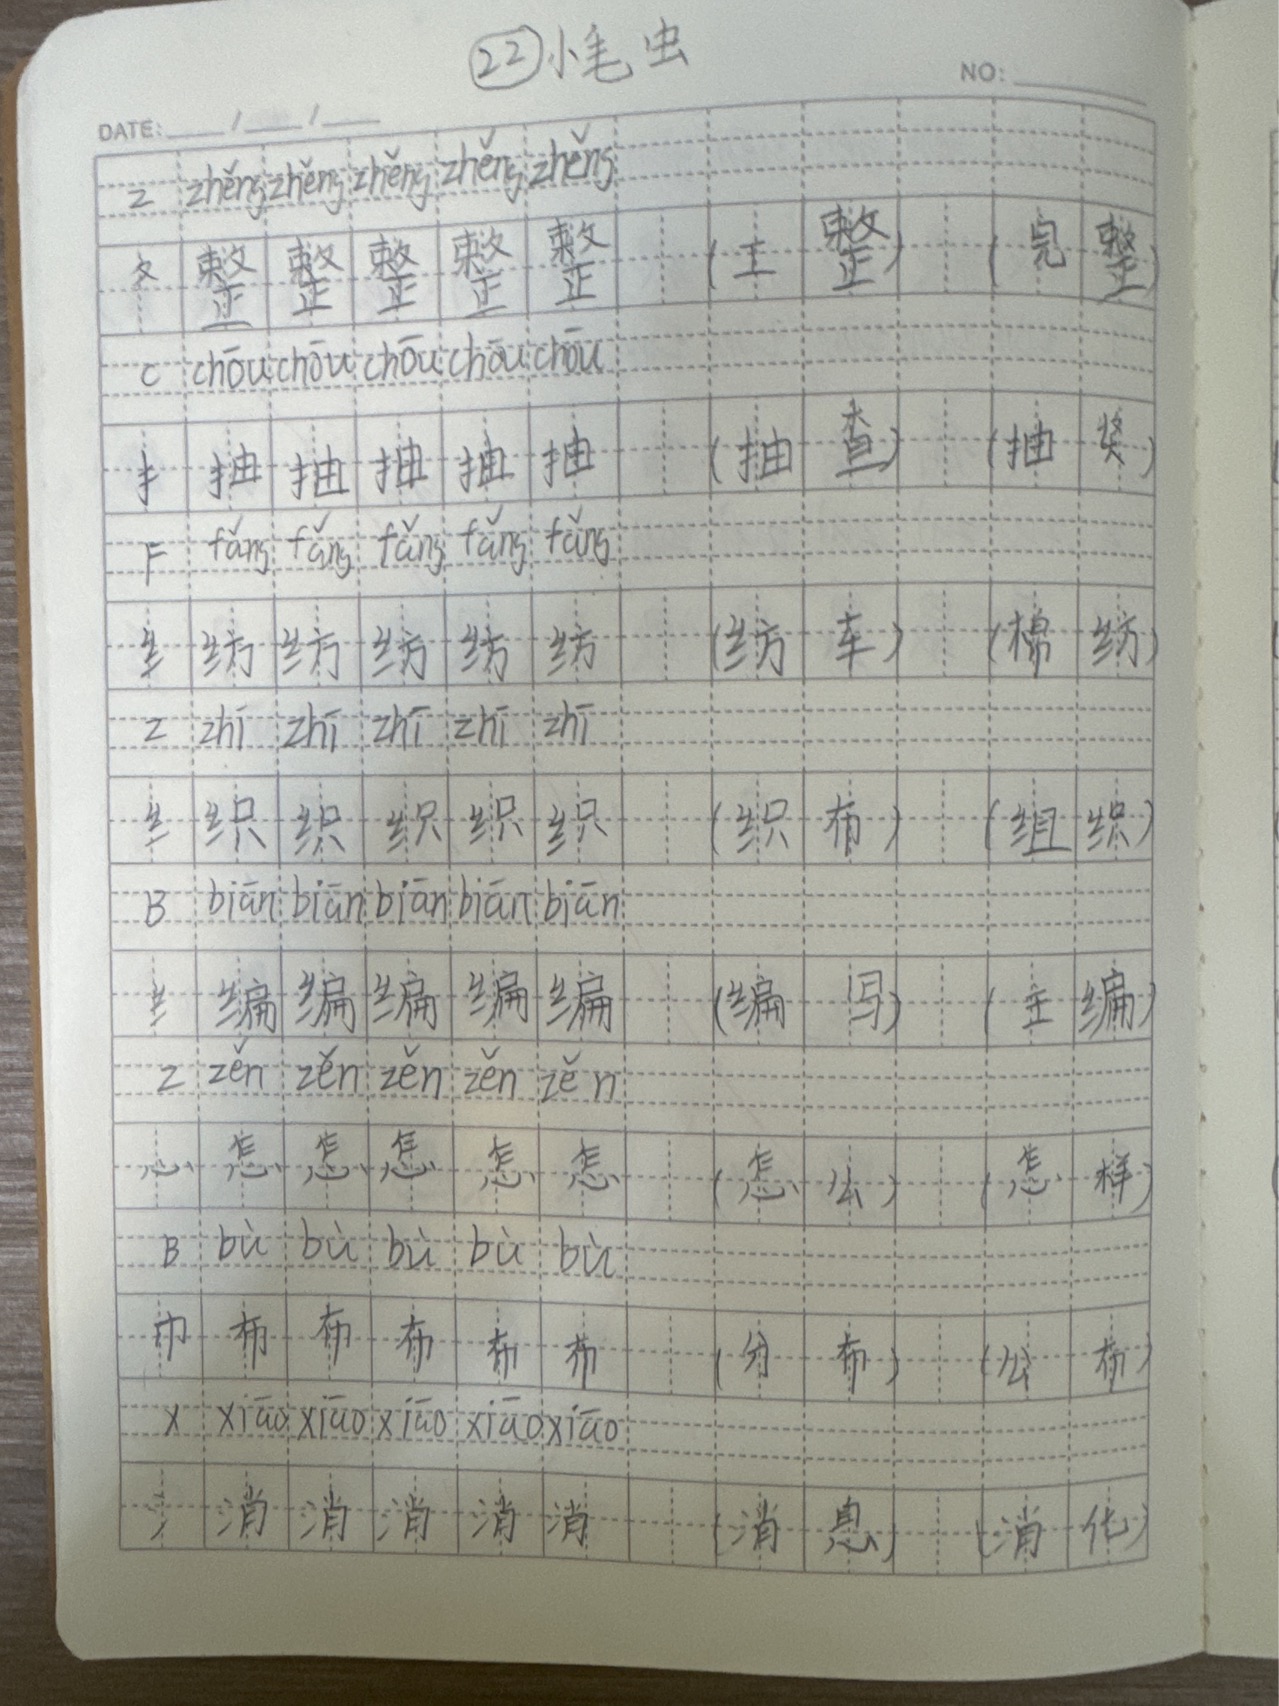 22 小毛虫
NO:
DATE: / /
Z zhěng zhěng zhěng zhěng zhěng
攵 整 整 整 整 整 (工 整) (完 整)
C chōu chōu chōu chōu chōu
扌 抽 抽 抽 抽 抽 (抽 查) (抽 奖)
F fǎng fǎng fǎng fǎng fǎng
纟 纺 纺 纺 纺 纺 (纺 车) (棉 纺)
Z zhī zhī zhī zhī zhī
纟 织 织 织 织 织 (织 布) (组 织)
B biān biān biān biān biān
纟 编 编 编 编 编 (编 写) (主 编)
Z zěn zěn zěn zěn zěn
心 怎 怎 怎 怎 怎 (怎 么) (怎 样)
B bù bù bù bù bù
巾 布 布 布 布 布 (分 布) (公 布)
X xiāo xiāo xiāo xiāo xiāo
氵 消 消 消 消 消 (消 息) (消 化)